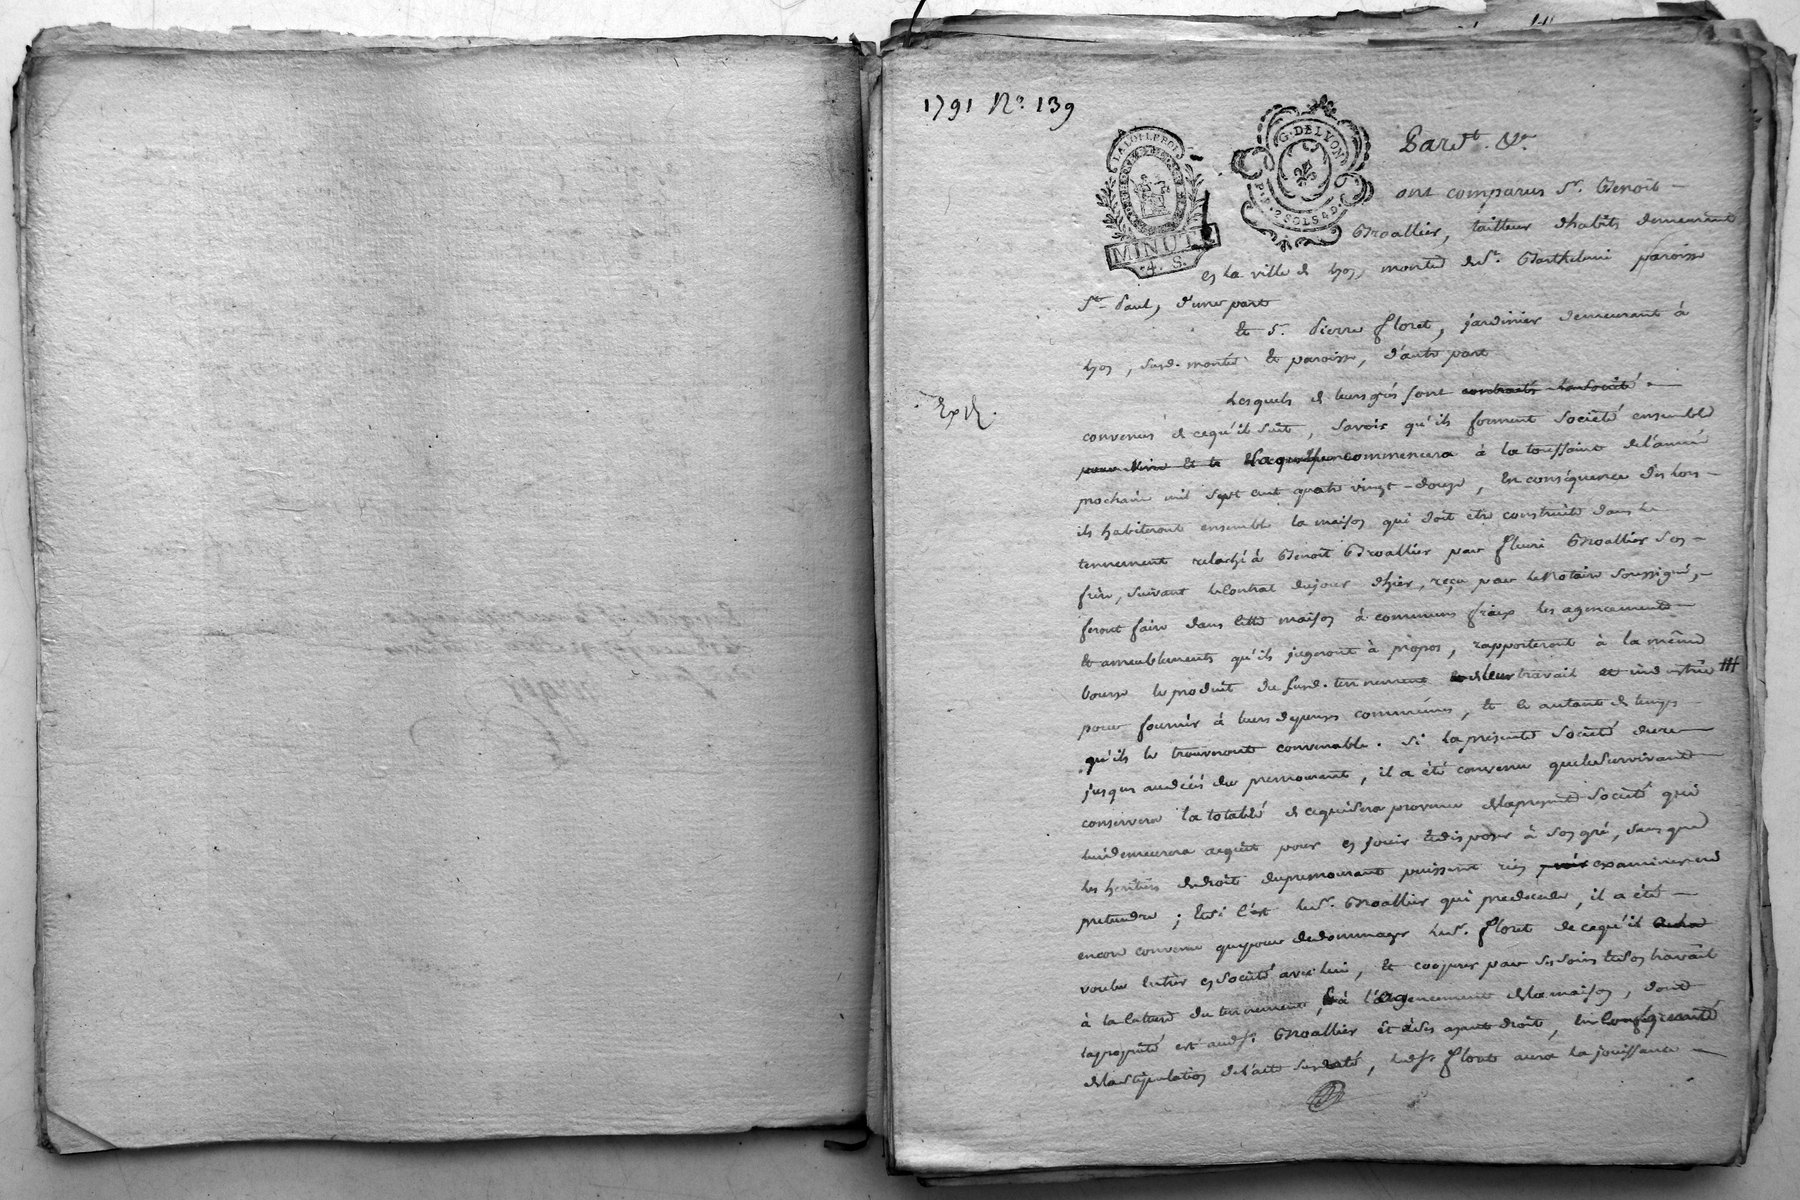 1791 N° 139
LA LOI LE ROI
MINUTE
4. S.
G. DE LYON
2 SOLS 4 D.
Pardt. &a.
ont comparus Sr. Benoit
Broallier, tailleur d'habits demeurant
en la ville de Lyon, montée de St. Barthelemi paroisse
St Paul, d'une part
Et S. Pierre floret, jardinier demeurant à
Lyon, susd. montée et paroisse, d'autre part
Lesquels de leurs grés sont contracté
Exp.
convenus de cequ'il suit, savoir qu'ils forment société ensemble
laquelle commencera à la toussaint de l'année
prochaine mil sept cent quatre vingt-douze, en conséquence dès lors
ils habiteront ensemble la maison qui doit etre construite dans le
tennement relaché à Benoit Broallier par fleuri Broallier son
frère, suivant le Contrat du jour d'hier, reçu par le Notaire soussigné,
feront faire dans cette maison à communs fraix les agencements
et ameublements qu'ils jugeront à propos, rapporteront à la même
bourse le produit du susd. tennement de leur travail et industrie
pour fournir à leurs depenses communes, et ce autant de temps
qu'ils le trouveront convenable. Si la présente société dure
jusques au décès du premourant, il a été convenu que le survivant
conservera la totalité de ce qui sera provenu de la présente société qui
lui demeurera acquit pour en jouir et disposer à son gré, sans que
les heritiers de droit du premourant puissent rien examiner ni
pretendre ; Et si c'est led. Sr. Broallier qui predecede, il a été
encore convenu que pour dedommager led. Sr. floret de cequ'il
voulu entrer en société avec lui, et coopérer par ses soins et son travail
à la culture du tennement, à l'agencement de la maison, dont
la propriété est aud. Sr. Broallier et à ses ayant droit, en conséquence
de la stipulation de l'acte susdaté, led. Sr floret aura la jouissance